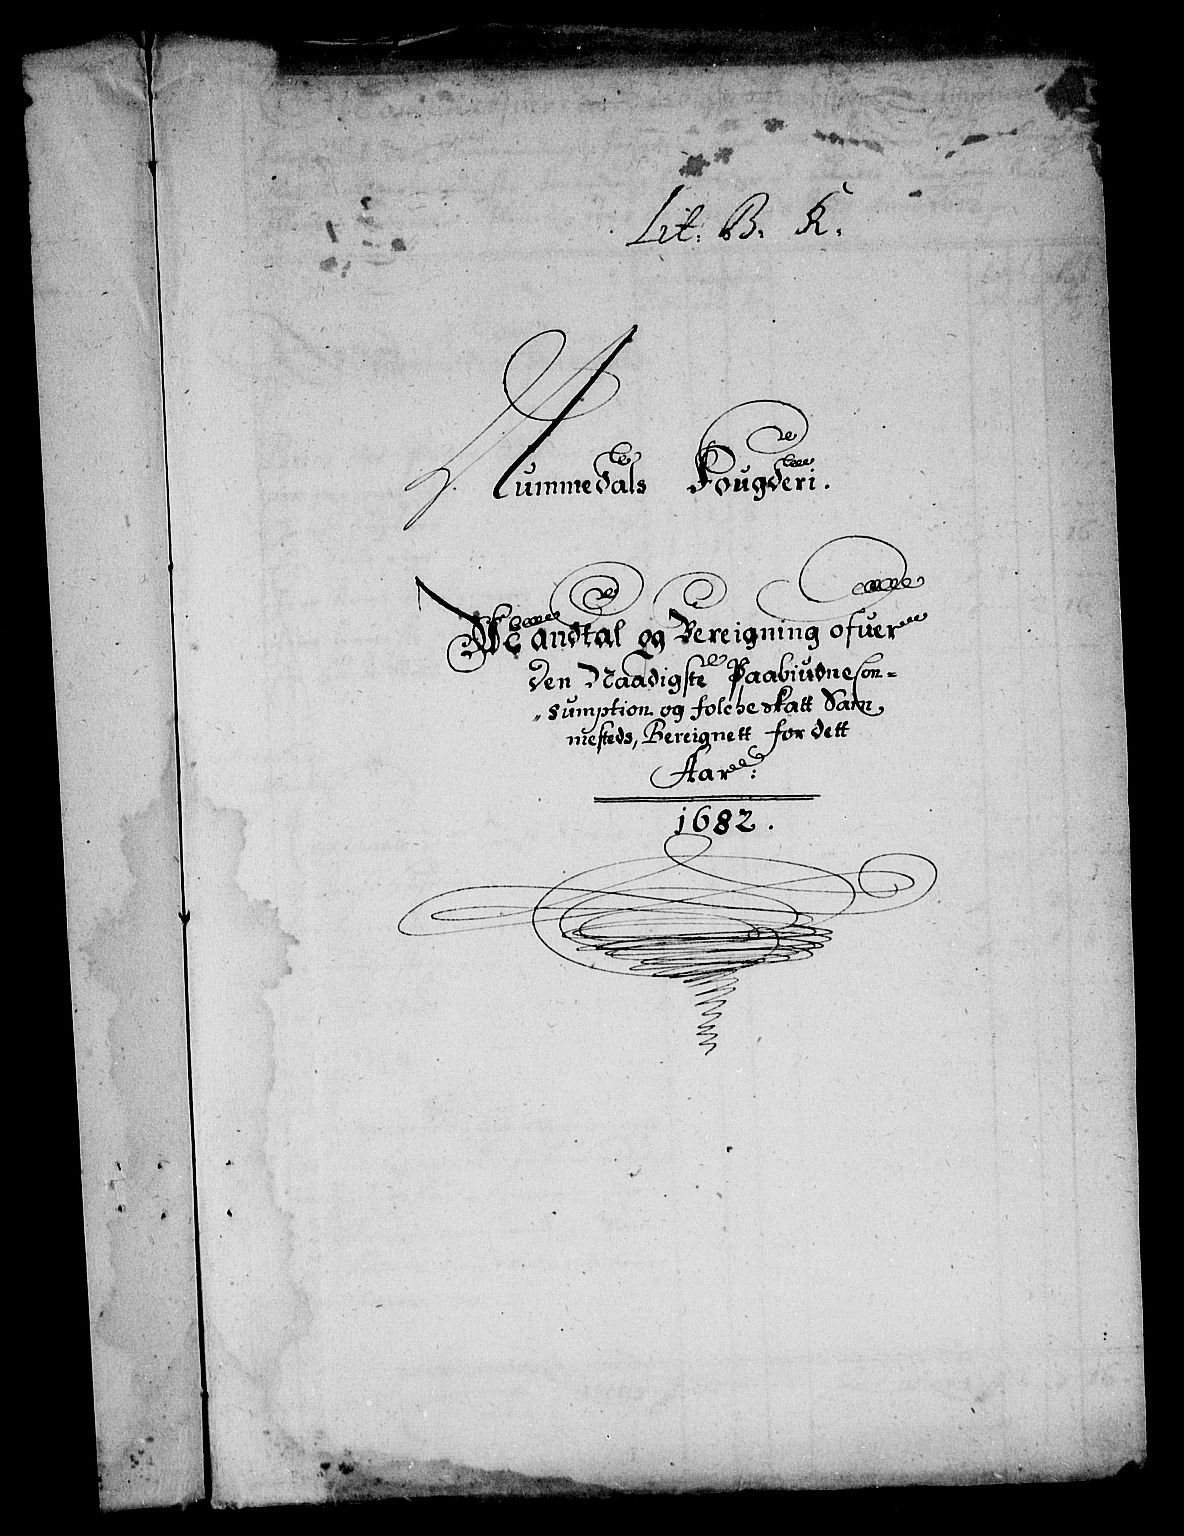 Lit. B. K.
Nummedals Fougderi.
Mandtal og Bereigning ofuer
den Naadigste Paabiudne Con=
„sumption og folche skatt Sam„
mesteds, Bereignett for dett
Aar:
1682.